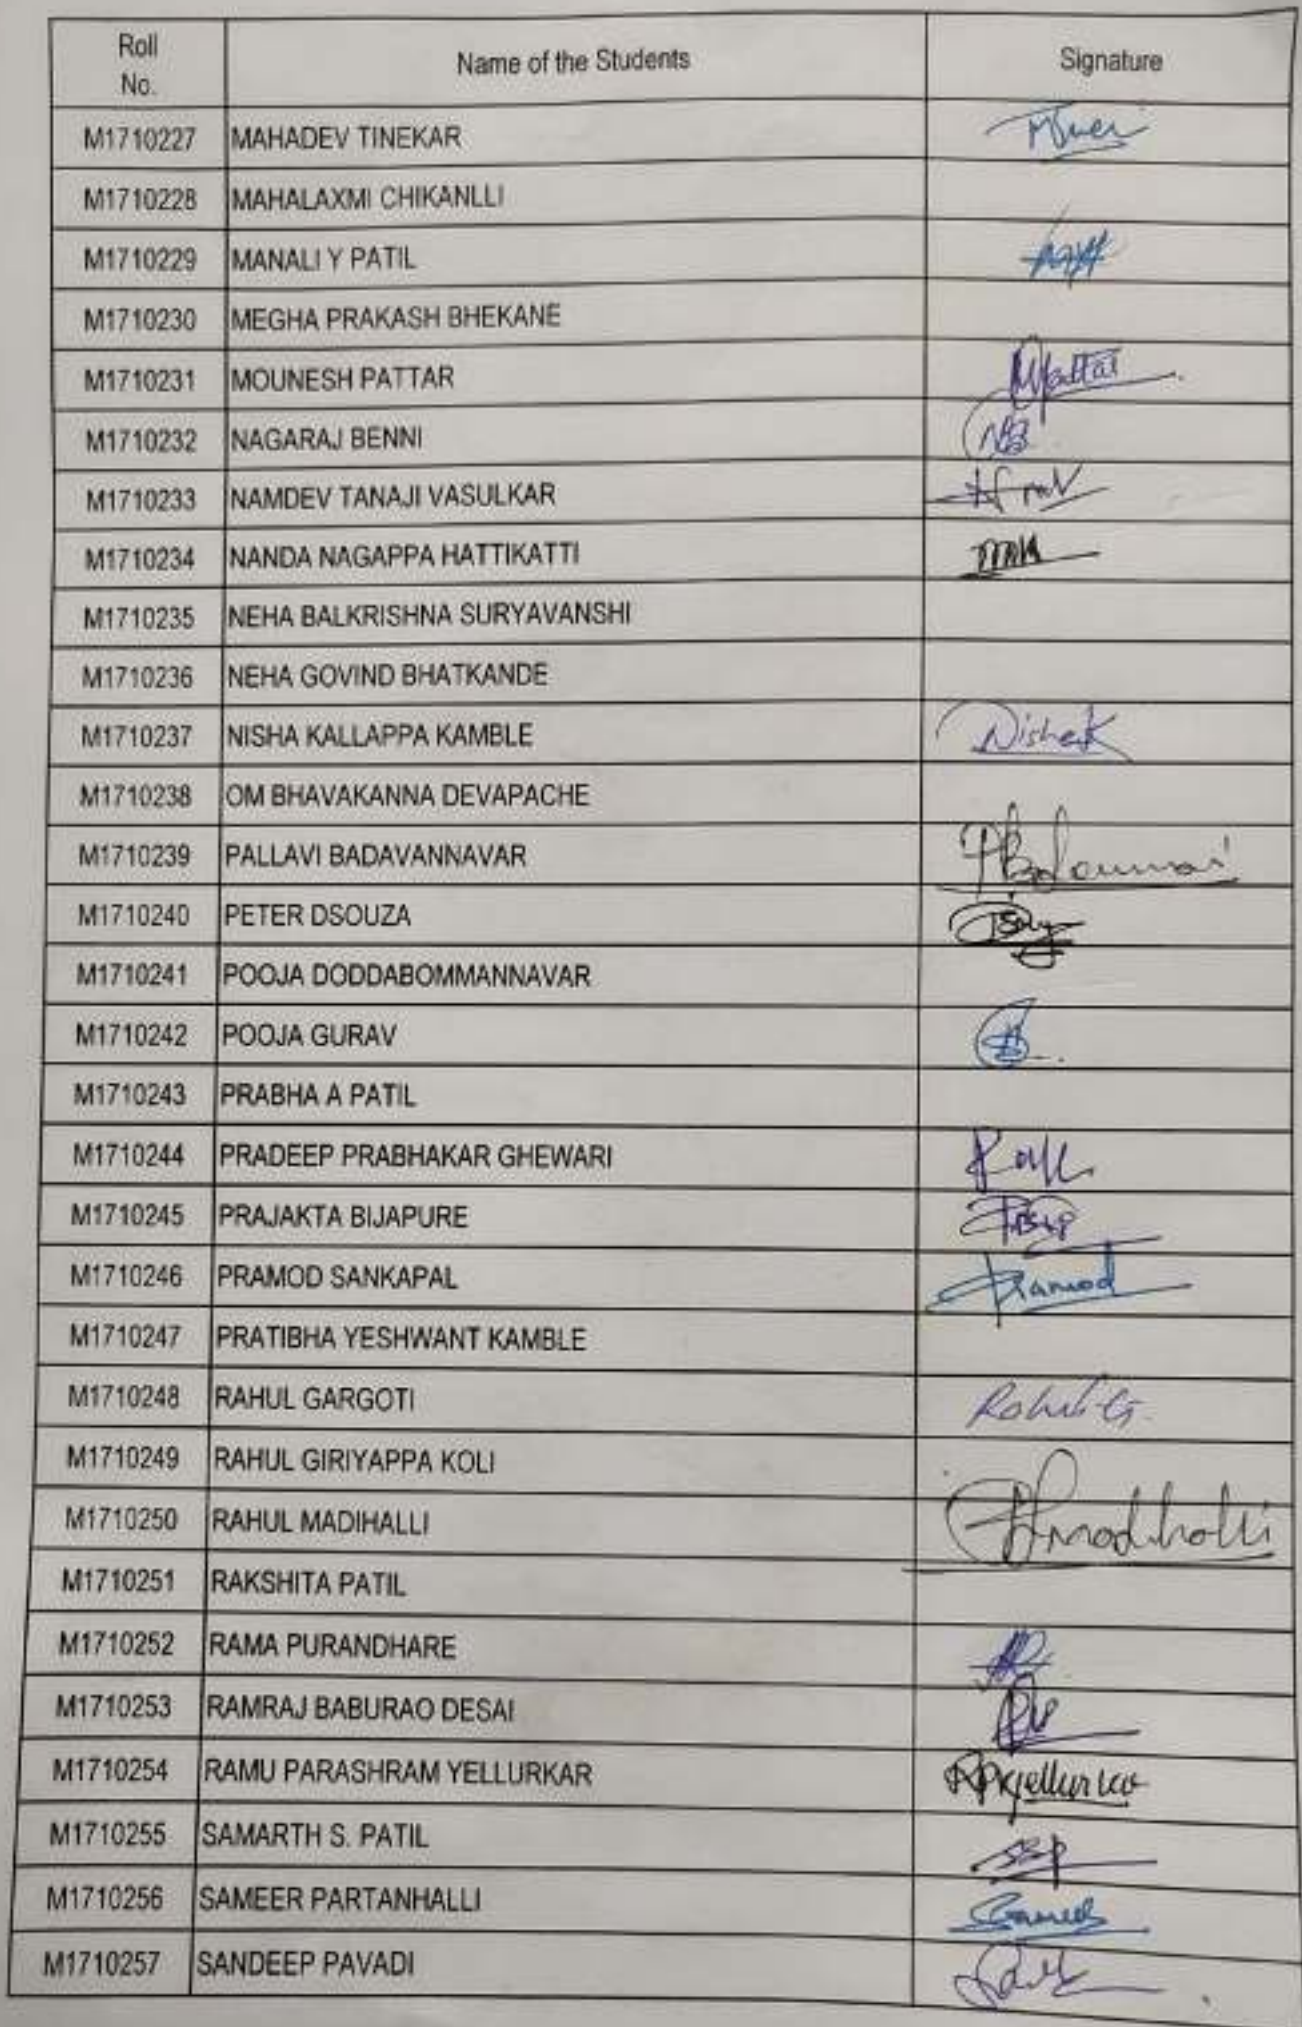 Roll No. Name of the Students Signature
M1710227 MAHADEV TINEKAR
M1710228 MAHALAXMI CHIKANLLI
M1710229 MANALI Y PATIL
M1710230 MEGHA PRAKASH BHEKANE
M1710231 MOUNESH PATTAR MPattar
M1710232 NAGARAJ BENNI
M1710233 NAMDEV TANAJI VASULKAR
M1710234 NANDA NAGAPPA HATTIKATTI
M1710235 NEHA BALKRISHNA SURYAVANSHI
M1710236 NEHA GOVIND BHATKANDE
M1710237 NISHA KALLAPPA KAMBLE NishaK
M1710238 OM BHAVAKANNA DEVAPACHE
M1710239 PALLAVI BADAVANNAVAR
M1710240 PETER DSOUZA
M1710241 POOJA DODDABOMMANNAVAR
M1710242 POOJA GURAV
M1710243 PRABHA A PATIL
M1710244 PRADEEP PRABHAKAR GHEWARI
M1710245 PRAJAKTA BIJAPURE
M1710246 PRAMOD SANKAPAL Pramod
M1710247 PRATIBHA YESHWANT KAMBLE
M1710248 RAHUL GARGOTI Rahul G.
M1710249 RAHUL GIRIYAPPA KOLI
M1710250 RAHUL MADIHALLI
M1710251 RAKSHITA PATIL
M1710252 RAMA PURANDHARE
M1710253 RAMRAJ BABURAO DESAI
M1710254 RAMU PARASHRAM YELLURKAR RPYellurkar
M1710255 SAMARTH S. PATIL SSP
M1710256 SAMEER PARTANHALLI Sameer
M1710257 SANDEEP PAVADI